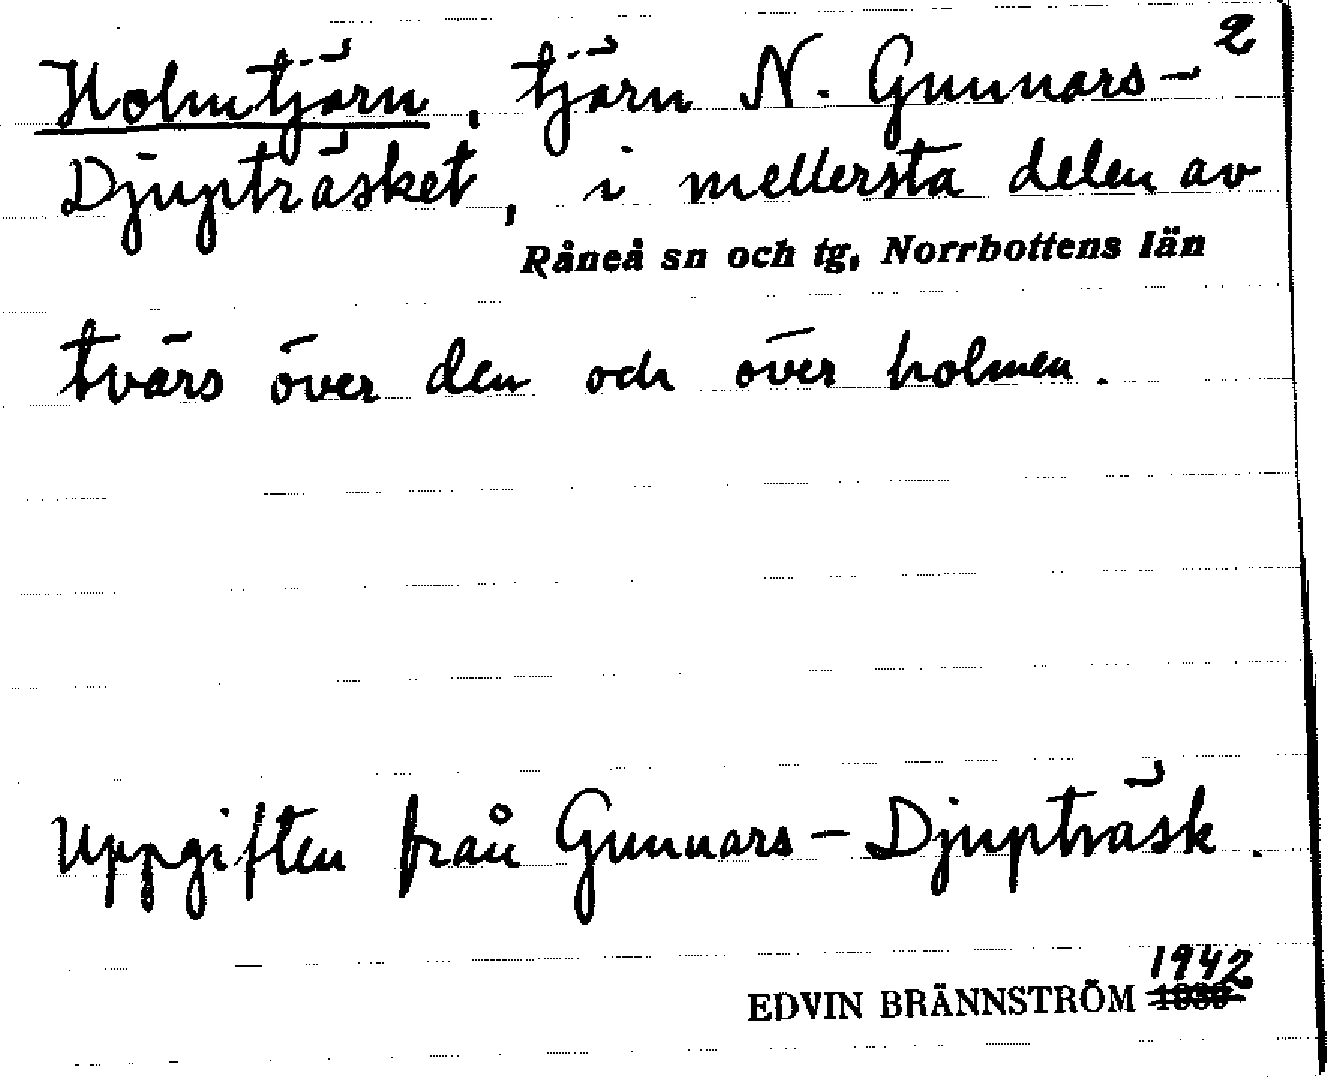 2
Holmtjärn, tjärn N. Gunnars-
Djupträsket, i mellersta delen av
Råneå sn och tg, Norrbottens län
tvärs över den och över holmen.
Uppgiften från Gunnars-Djupträsk.
1942
EDVIN BRÄNNSTRÖM 1939